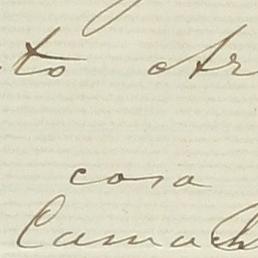 to Ar
cosa
Camach